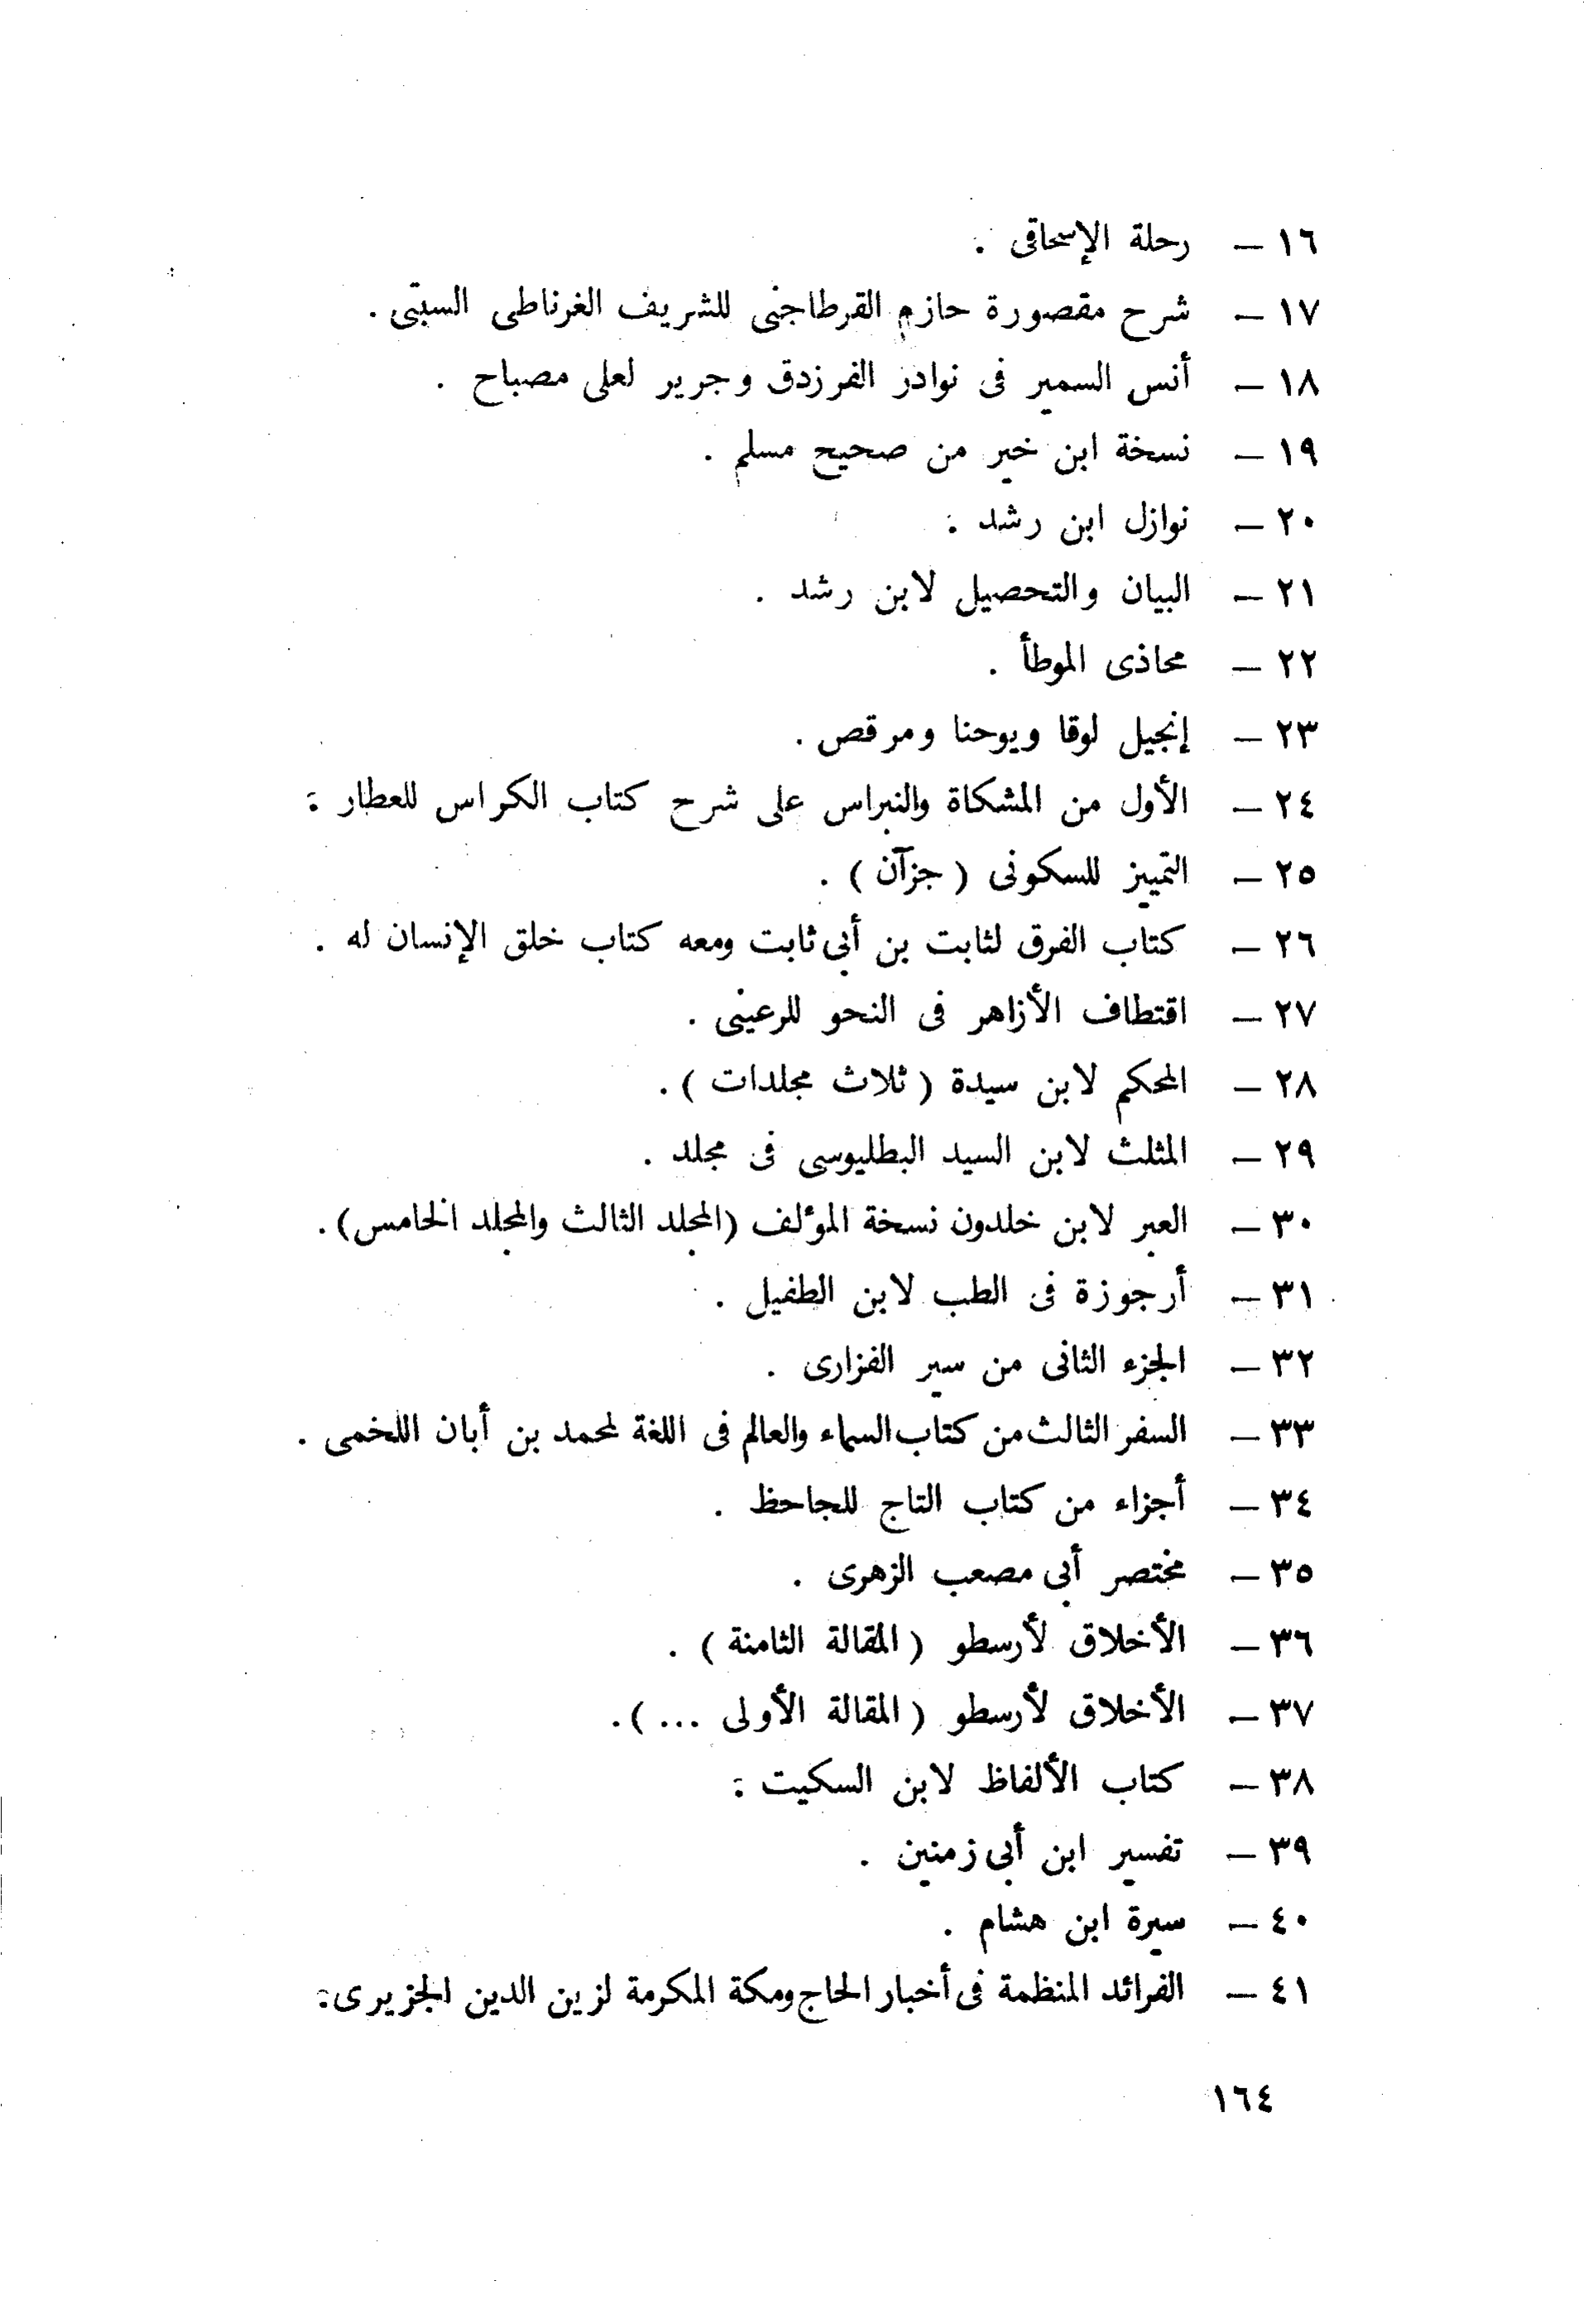 ١٦ – رحلة الإسحاقى .
١٧ – شرح مقصورة حازم القرطاجنى للشريف الغرناطى السبتى .
١٨ – أنس السمير فى نوادر الفرزدق وجرير لعلى مصباح .
١٩ – نسخة ابن خير من صحيح مسلم .
٢٠ – نوازل ابن رشد .
٢١ – البيان والتحصيل لابن رشد .
٢٢ – محاذى الموطأ .
٢٣ – إنجيل لوقا ويوحنا ومرقص .
٢٤ – الأول من المشكاة والنبراس على شرح كتاب الكراس للعطار .
٢٥ – التمييز للسكونى ( جزآن ) .
٢٦ – كتاب الفرق لثابت بن أبى ثابت ومعه كتاب خلق الإنسان له .
٢٧ – اقتطاف الأزاهر فى النحو للرعينى .
٢٨ – المحكم لابن سيدة ( ثلاث مجلدات ) .
٢٩ – المثلث لابن السيد البطليوسى فى مجلد .
٣٠ – العبر لابن خلدون نسخة المؤلف (المجلد الثالث والمجلد الخامس) .
٣١ – أرجوزة فى الطب لابن الطفيل .
٣٢ – الجزء الثانى من سير الفزارى .
٣٣ – السفر الثالث من كتاب السماء والعالم فى اللغة لمحمد بن أبان اللخمى .
٣٤ – أجزاء من كتاب التاج للجاحظ .
٣٥ – مختصر أبى مصعب الزهرى .
٣٦ – الأخلاق لأرسطو ( المقالة الثامنة ) .
٣٧ – الأخلاق لأرسطو ( المقالة الأولى ... ) .
٣٨ – كتاب الألفاظ لابن السكيت .
٣٩ – تفسير ابن أبى زمنين .
٤٠ – سيرة ابن هشام .
٤١ – الفرائد المنظمة فى أخبار الحاج ومكة المكرمة لزين الدين الجزيرى .
١٦٤